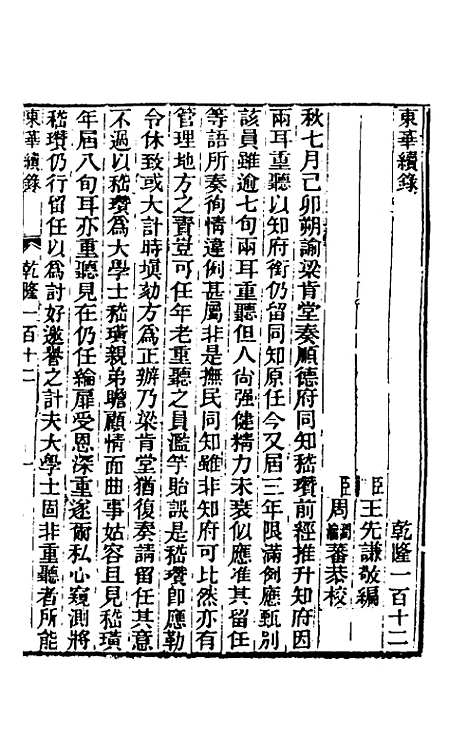 東華續錄
乾隆一百十二
臣王先謙敬編
臣周潤蕃恭校
秋七月己卯朔諭梁肯堂奏順德府同知嵇瓚前經推升知府因
兩耳重聽以知府銜仍留同知原任今又屆三年限滿例應甄別
該員雖逾七旬兩耳重聽但人尚强健精力未衰似應准其留任
等語所奏徇情違例甚屬非是撫民同知雖非知府可比然亦有
管理地方之責豈可任年老重聽之員濫竽貽誤是嵇瓚卽應勒
令休致或大計時填劾方爲正辦乃梁肯堂猶復奏請留任其意
不過以嵇瓚爲大學士嵇璜親弟瞻顧情面曲事姑容且見嵇璜
年屆八旬耳亦重聽見在仍任綸扉受恩深重遂爾私心窺測將
嵇瓚仍行留任以爲討好邀譽之計夫大學士固非重聽者所能
東華續錄
乾隆一百十二
一